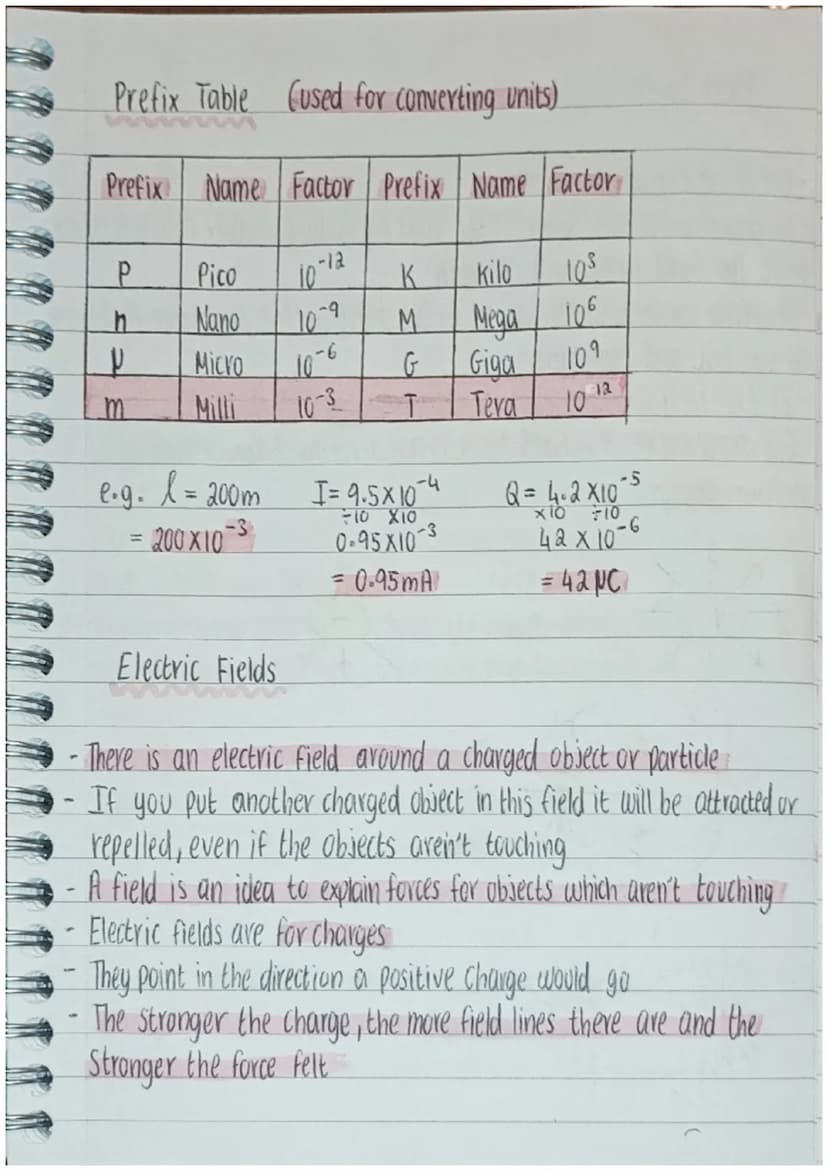 Prefix Table (used for converting units)
Prefix Name Factor Prefix Name Factor
P Pico 10⁻¹² K Kilo 10³
n Nano 10⁻⁹ M Mega 10⁶
μ Micro 10⁻⁶ G Giga 10⁹
m Milli 10⁻³ T Tera 10¹²
e.g. l = 200m I = 9.5×10⁻⁴ Q = 4.2×10⁻⁵
÷10 ×10 ×10 ÷10
= 200×10⁻³ 0.95×10⁻³ 42×10⁻⁶
= 0.95mA = 42μC
Electric Fields
- There is an electric field around a charged object or particle
- If you put another charged object in this field it will be attracted or
repelled, even if the objects aren't touching
- A field is an idea to explain forces for objects which aren't touching
- Electric fields are for charges
- They point in the direction a positive charge would go
- The stronger the charge, the more field lines there are and the
stronger the force felt